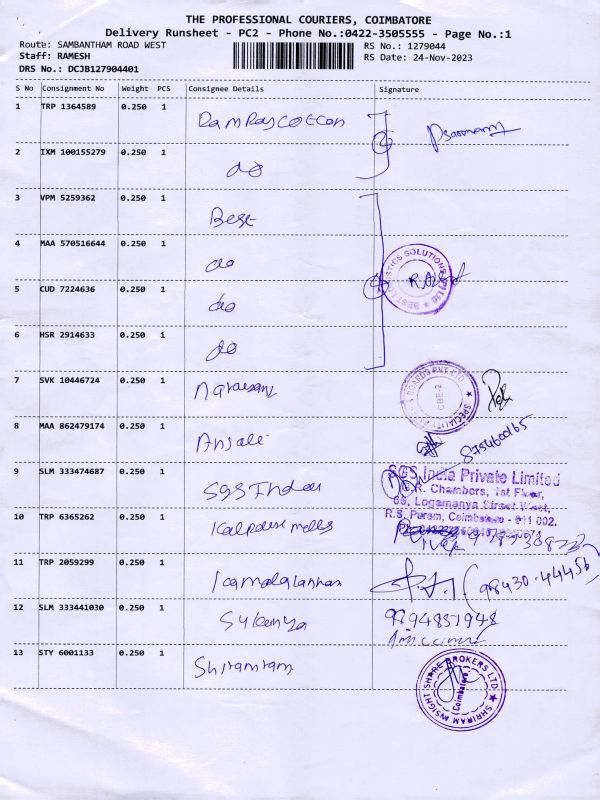 THE PROFESSIONAL COURIERS, COIMBATORE
Delivery Runsheet - PC2 - Phone No.:0422-3505555 - Page No.:1
Route: SAMBANTHAM ROAD WEST
RS No.: 1279044
Staff: RAMESH
RS Date: 24-Nov-2023
DRS No.: DCJB127904401
S No Consignment No Weight PCS Consignee Details Signature
1 TRP 1364589 0.250 1
2 IXM 100155279 0.250 1 do
3 VPM 5259362 0.250 1 Best
4 MAA 570516644 0.250 1 do
5 CUD 7224636 0.250 1 do
6 HSR 2914633 0.250 1 do
BEST LOGISTICS SOLUTIONS (P) Ltd
7 SVK 10446724 0.250 1
BOARDS PVT. LTD. SPECIALITY
CBE-2
8 MAA 862479174 0.250 1 Anjali 8754600165
9 SLM 333474687 0.250 1 SGS India
SGS India Private Limited
Chambers, 1st Floor,
Logamanya Street West,
R.S. Puram, Coimbatore - 641 002.
10 TRP 6365262 0.250 1
11 TRP 2059299 0.250 1 (98430-44456)
12 SLM 333441030 0.250 1 Sukanya 9994851948
13 STY 6001133 0.250 1
SHRIRAM INSIGHT SHARE BROKERS LTD
Coimbatore